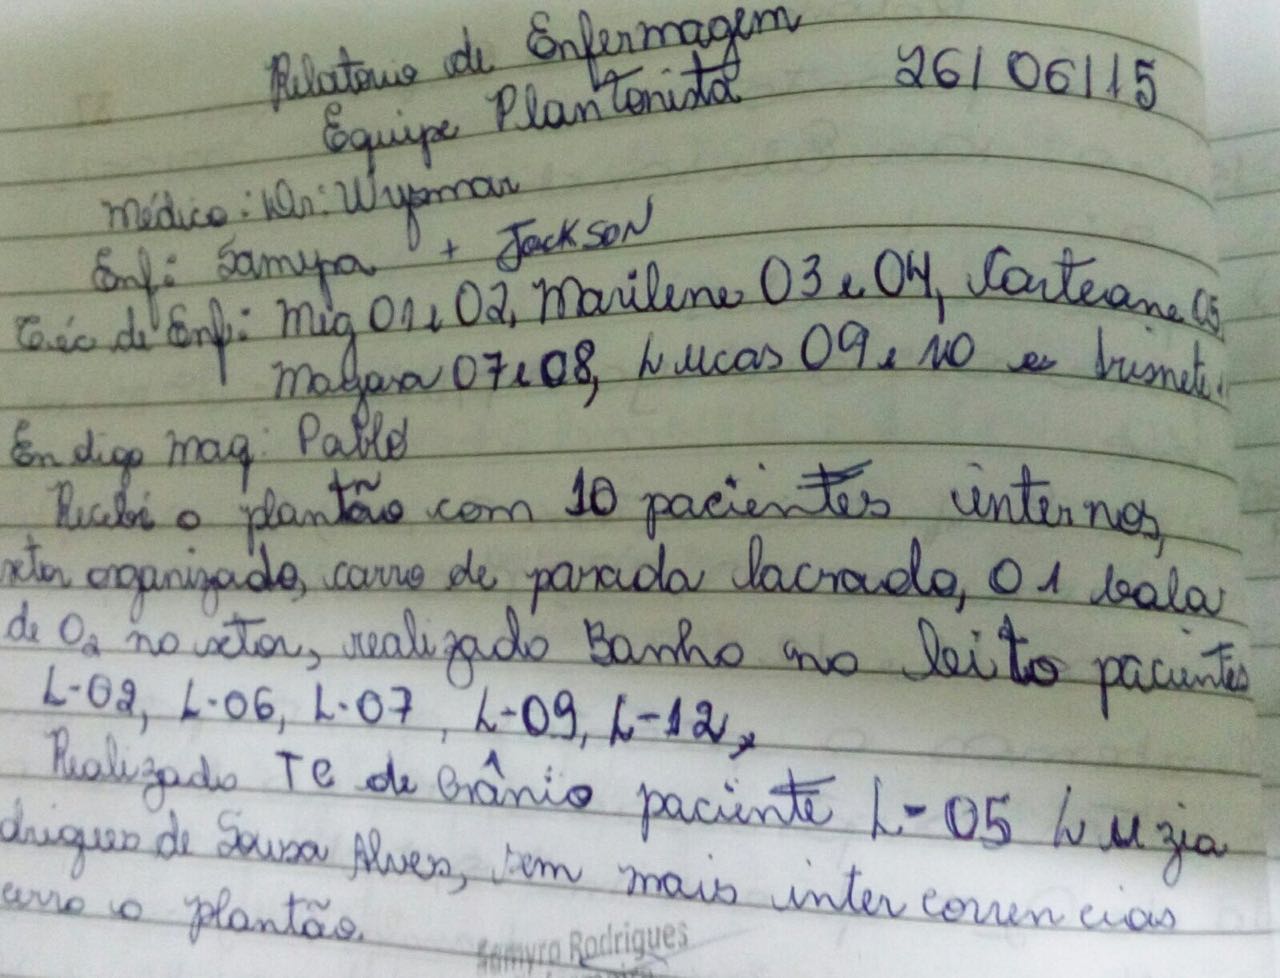 Relatorio de Enfermagem
Equipe Plantonista 26/06/15
Médico: Dr: Wysmar
Enf: Samyra + Jackson
Téc de Enf: Meg 01 e 02, Marilene 03 e 04, 05
07 e 08, Lucas 09 e 10 e
maq: Pablo
Recebi o plantão com 10 pacientes internos,
setor organizado, carro de parada lacrado, 01 bala
de O2 no setor, realizado Banho no leito pacientes
L-02, L-06, L-07, L-09, L-12,
Realizado TC de Crânio paciente L-05 Luzia
drigues de Sousa Alves, sem mais intercorrencias
erro o plantão.
Samyra Rodrigues